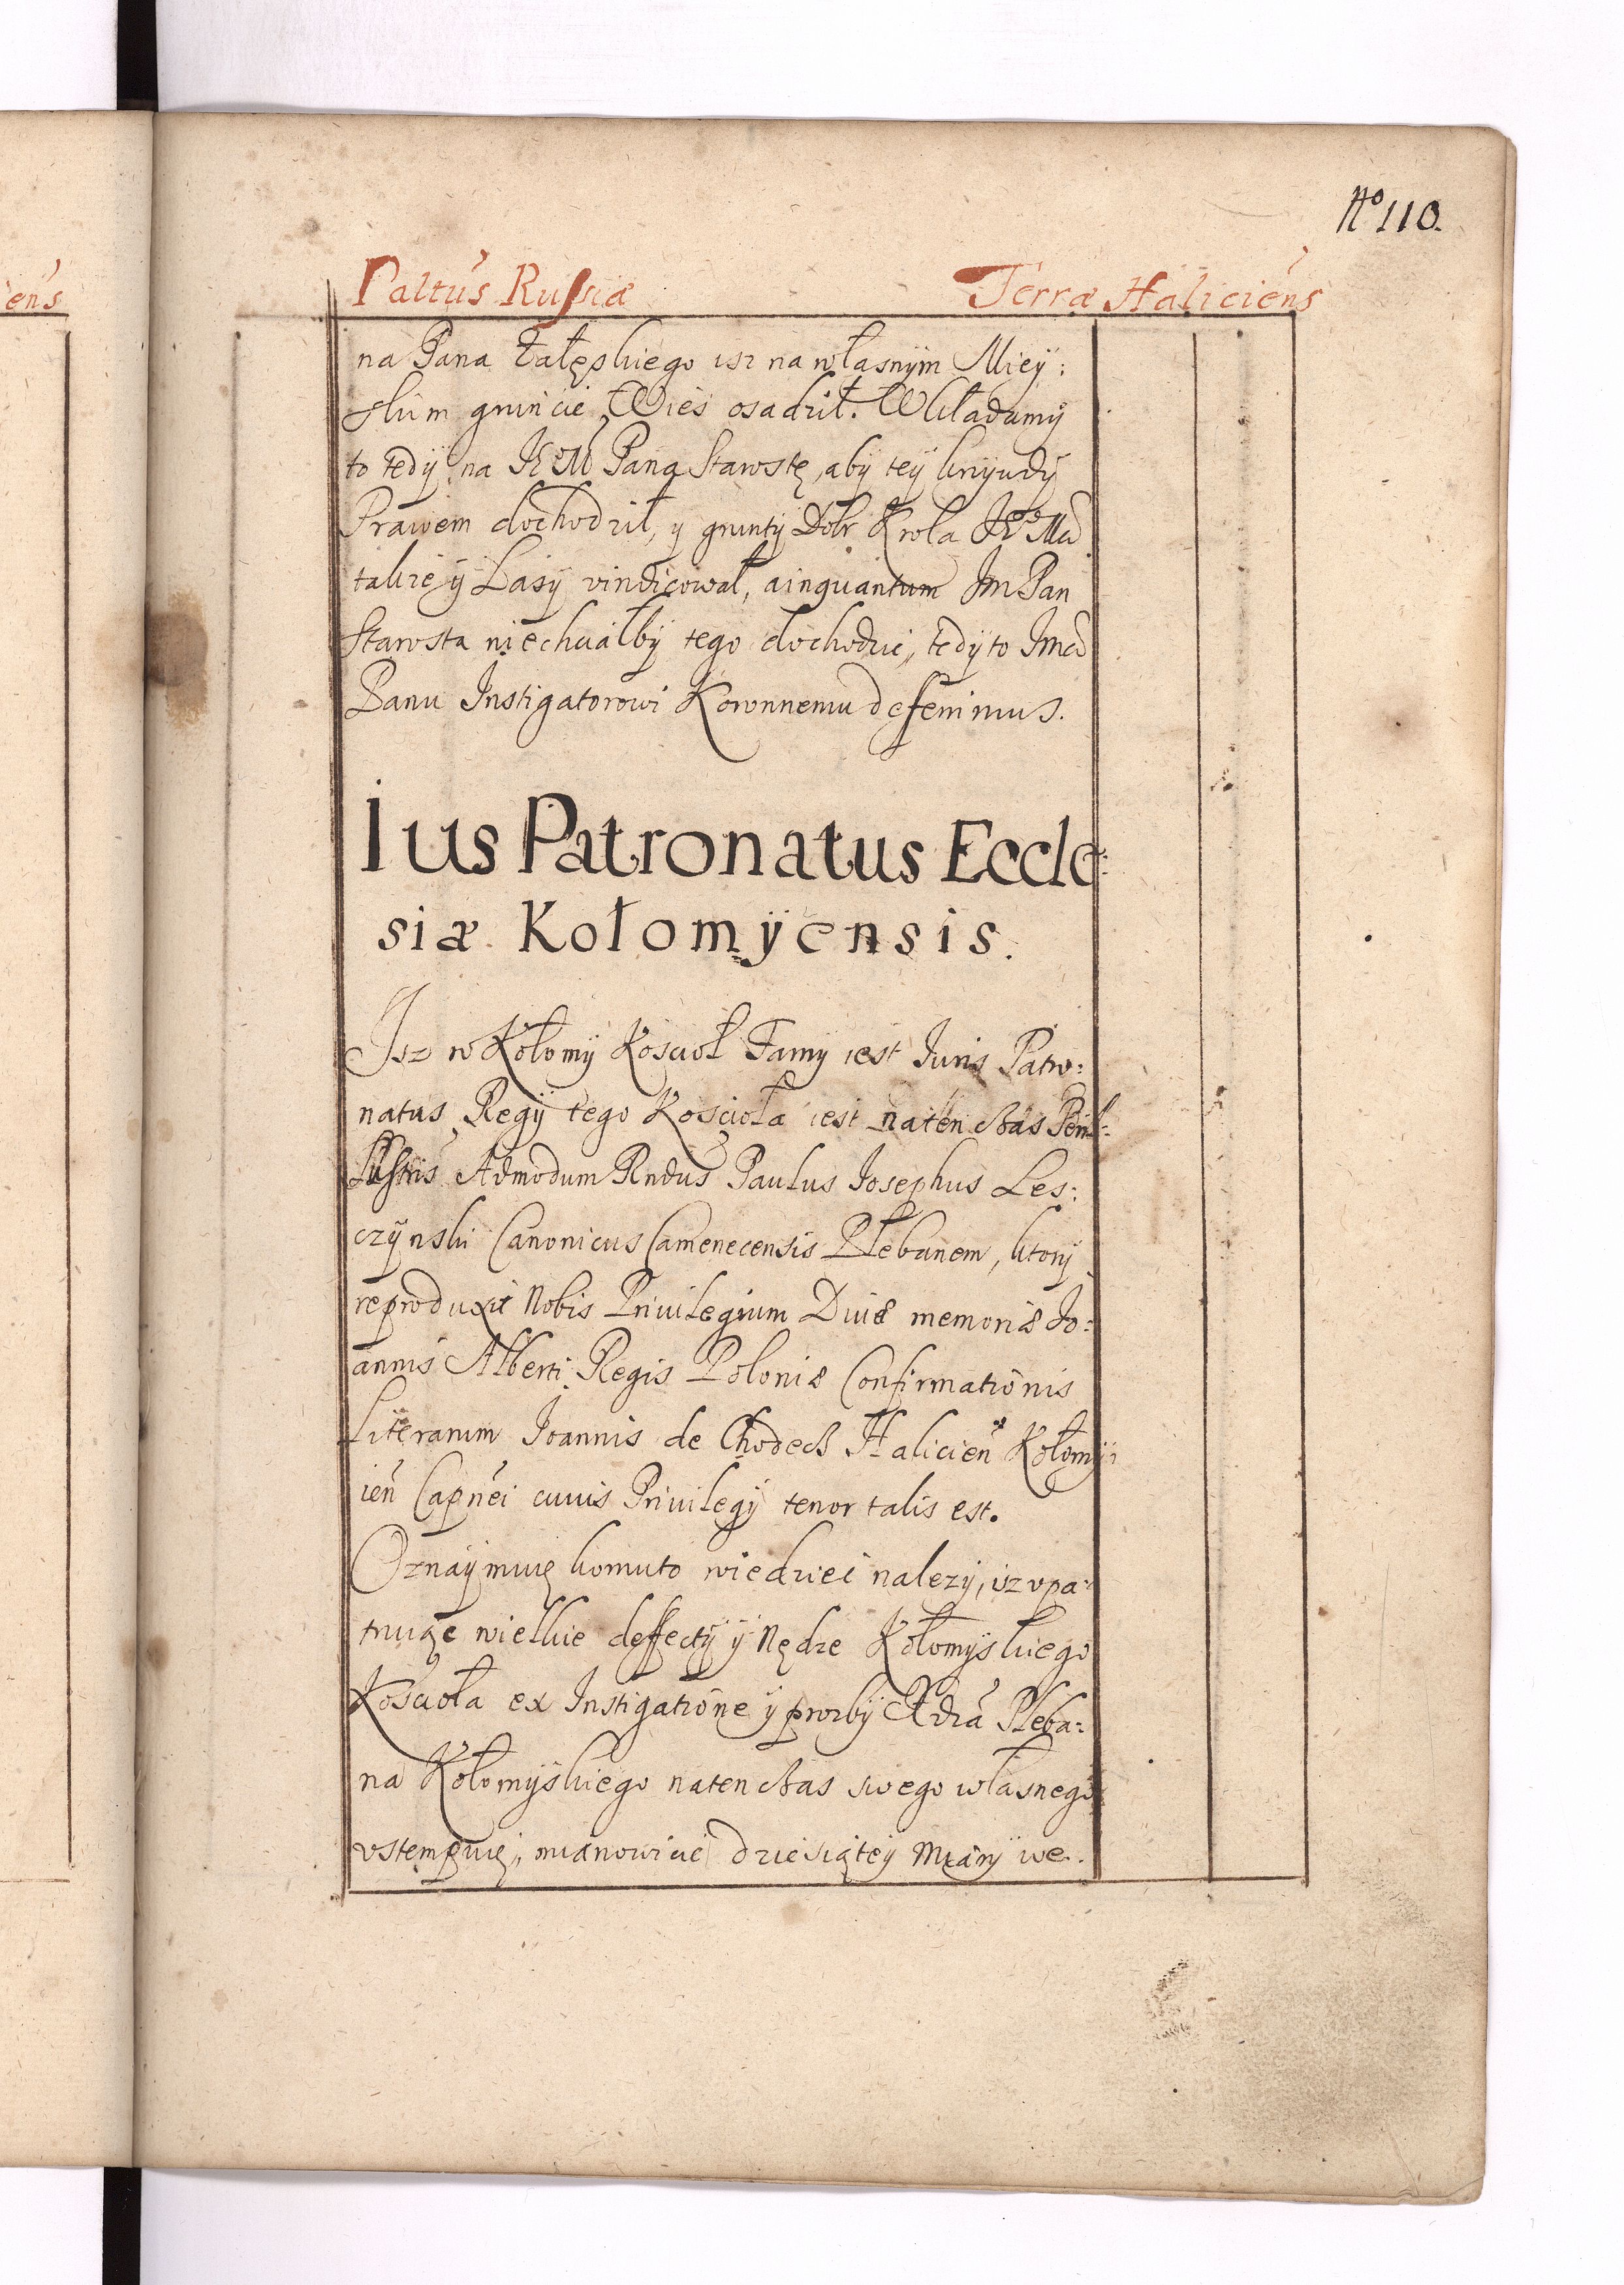 No 110.
Paltus Russiæ Terræ Haliciens
na Pana Załęskiego isz na własnym Miey:
skim gruncie Wies osadził. Wkładamy
to tedÿ na JKM Pana Starostę, abÿ teÿ krzywdÿ
Prawem dochodził, y gruntÿ Dobr Krola Je° Mci
takze ÿ Lasÿ vindicował, a inquantum Jm Pan
Starosta niechciałbÿ tego dochodzic, tedÿ to Jmci
Panu Instigatorowi Koronnemu deferimus.
Ius Patronatus Eccle:
siæ Kołomÿensis.
Isz w Kołomÿ Koscioł Farny iest Iuris Patro:
natus Regÿ tego Koscioła iest naten czas Peril:
lustris Admodum Rndus Paulus Iosephus Les:
czÿnski Canonicus Camenecensis Plebanem, ktorÿ
reproduxit Nobis Priuilegium Diuæ memoriæ Jo:
annis Alberti Regis Poloniæ Confirmationis
Literarum Joannis de Chodecz Halicien Kołomÿ:
ien Capnei cuius Priuilegÿ tenor talis est.
Oznaÿmuię komuto wiedziec nalezÿ, iz vpa:
truiąc wielkie deffectÿ ÿ Nędze Kołomÿskiego
Koscioła ex Instigatione ÿ prozbÿ Xdza Pleba:
na Kołomÿskiego naten czas swego własnego
vstempuię, mianowicie dziesiąteÿ Miarÿ we.
ens